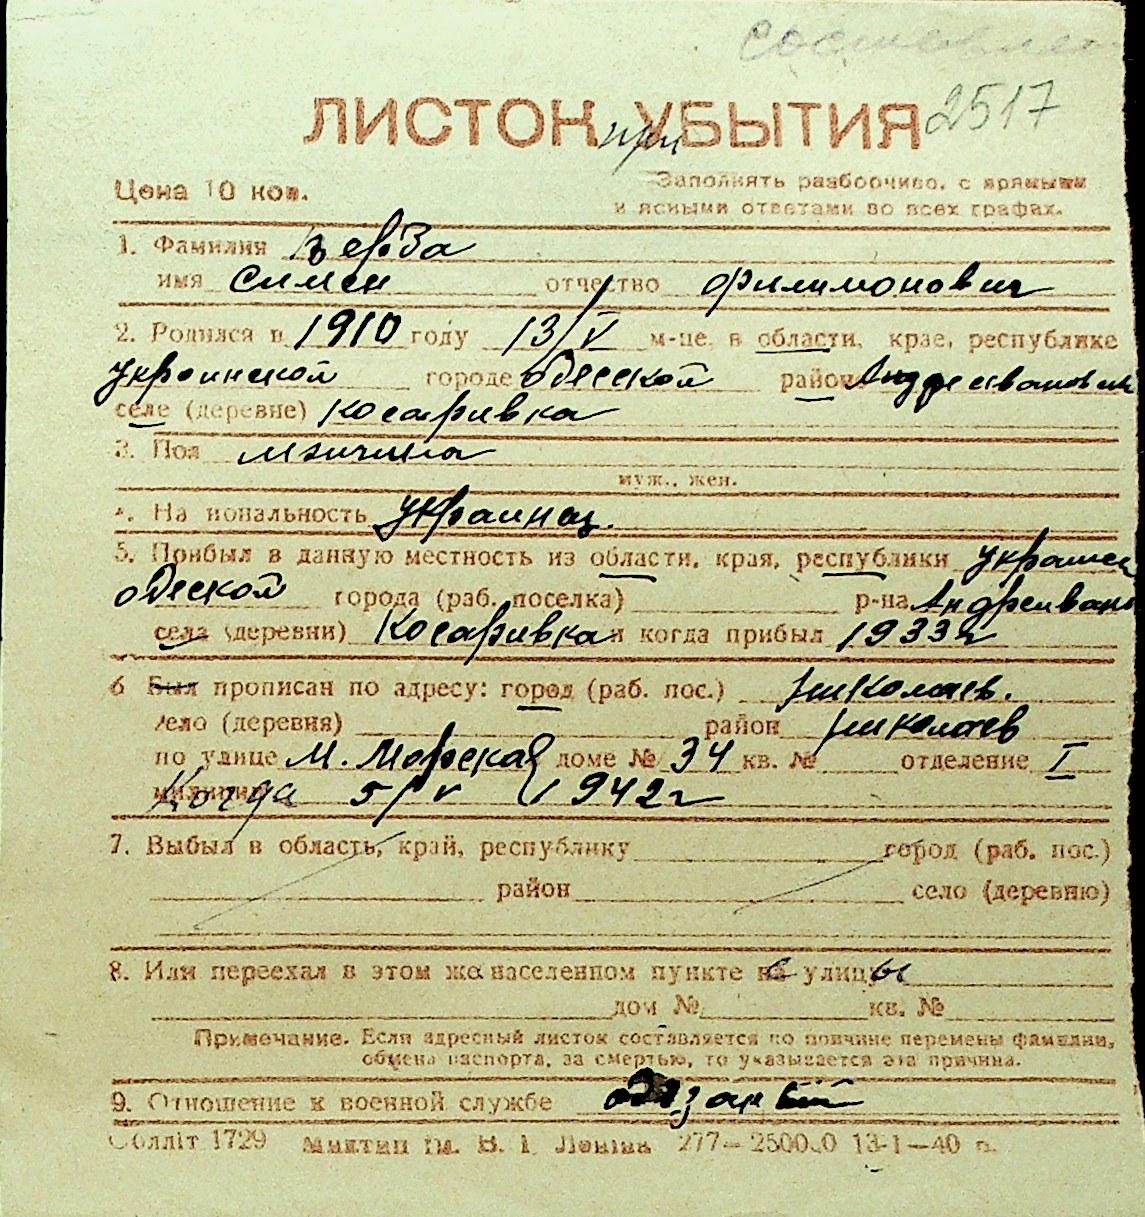 составлен
ЛИСТОК при УБЫТИЯ 2517
Цена 10 коп.
Заполнять разборчиво, с прямыми
и ясными ответами во всех графах.
1. Фамилия Верза
имя Симен отчество Филимонович
2. Родился в 1910 году 13/V м-це, в области, крае, республике
украинской городе одесской район
селе (деревне) Косаривка
3. Пол мэичина
муж., жен.
4. На иональность украинец.
5. Прибыл в данную местность из области, края, республики украинс
одеской города (раб. поселка) р-на Андреивано
села (деревни) Косаривка и когда прибыл 1933г
6 Был прописан по адресу: город (раб. пос.) николаев.
село (деревня) район николаев
по улице М. Морская доме № 34 кв. № отделение I
милиции Когда 5/V 1942г
7. Выбыл в область, край, республику город (раб. пос.)
район село (деревню)
8. Или переехал в этом же населенном пункте с улицы
дом № кв. №
Примечание. Если адресный листок составляется по причине перемены фамилии,
обмена паспорта, за смертью, то указывается эта причина.
9. Отношение к военной службе
Обліт 1729 Миктип ім. В. І. Леніна 277—250000 13-1—40 р.